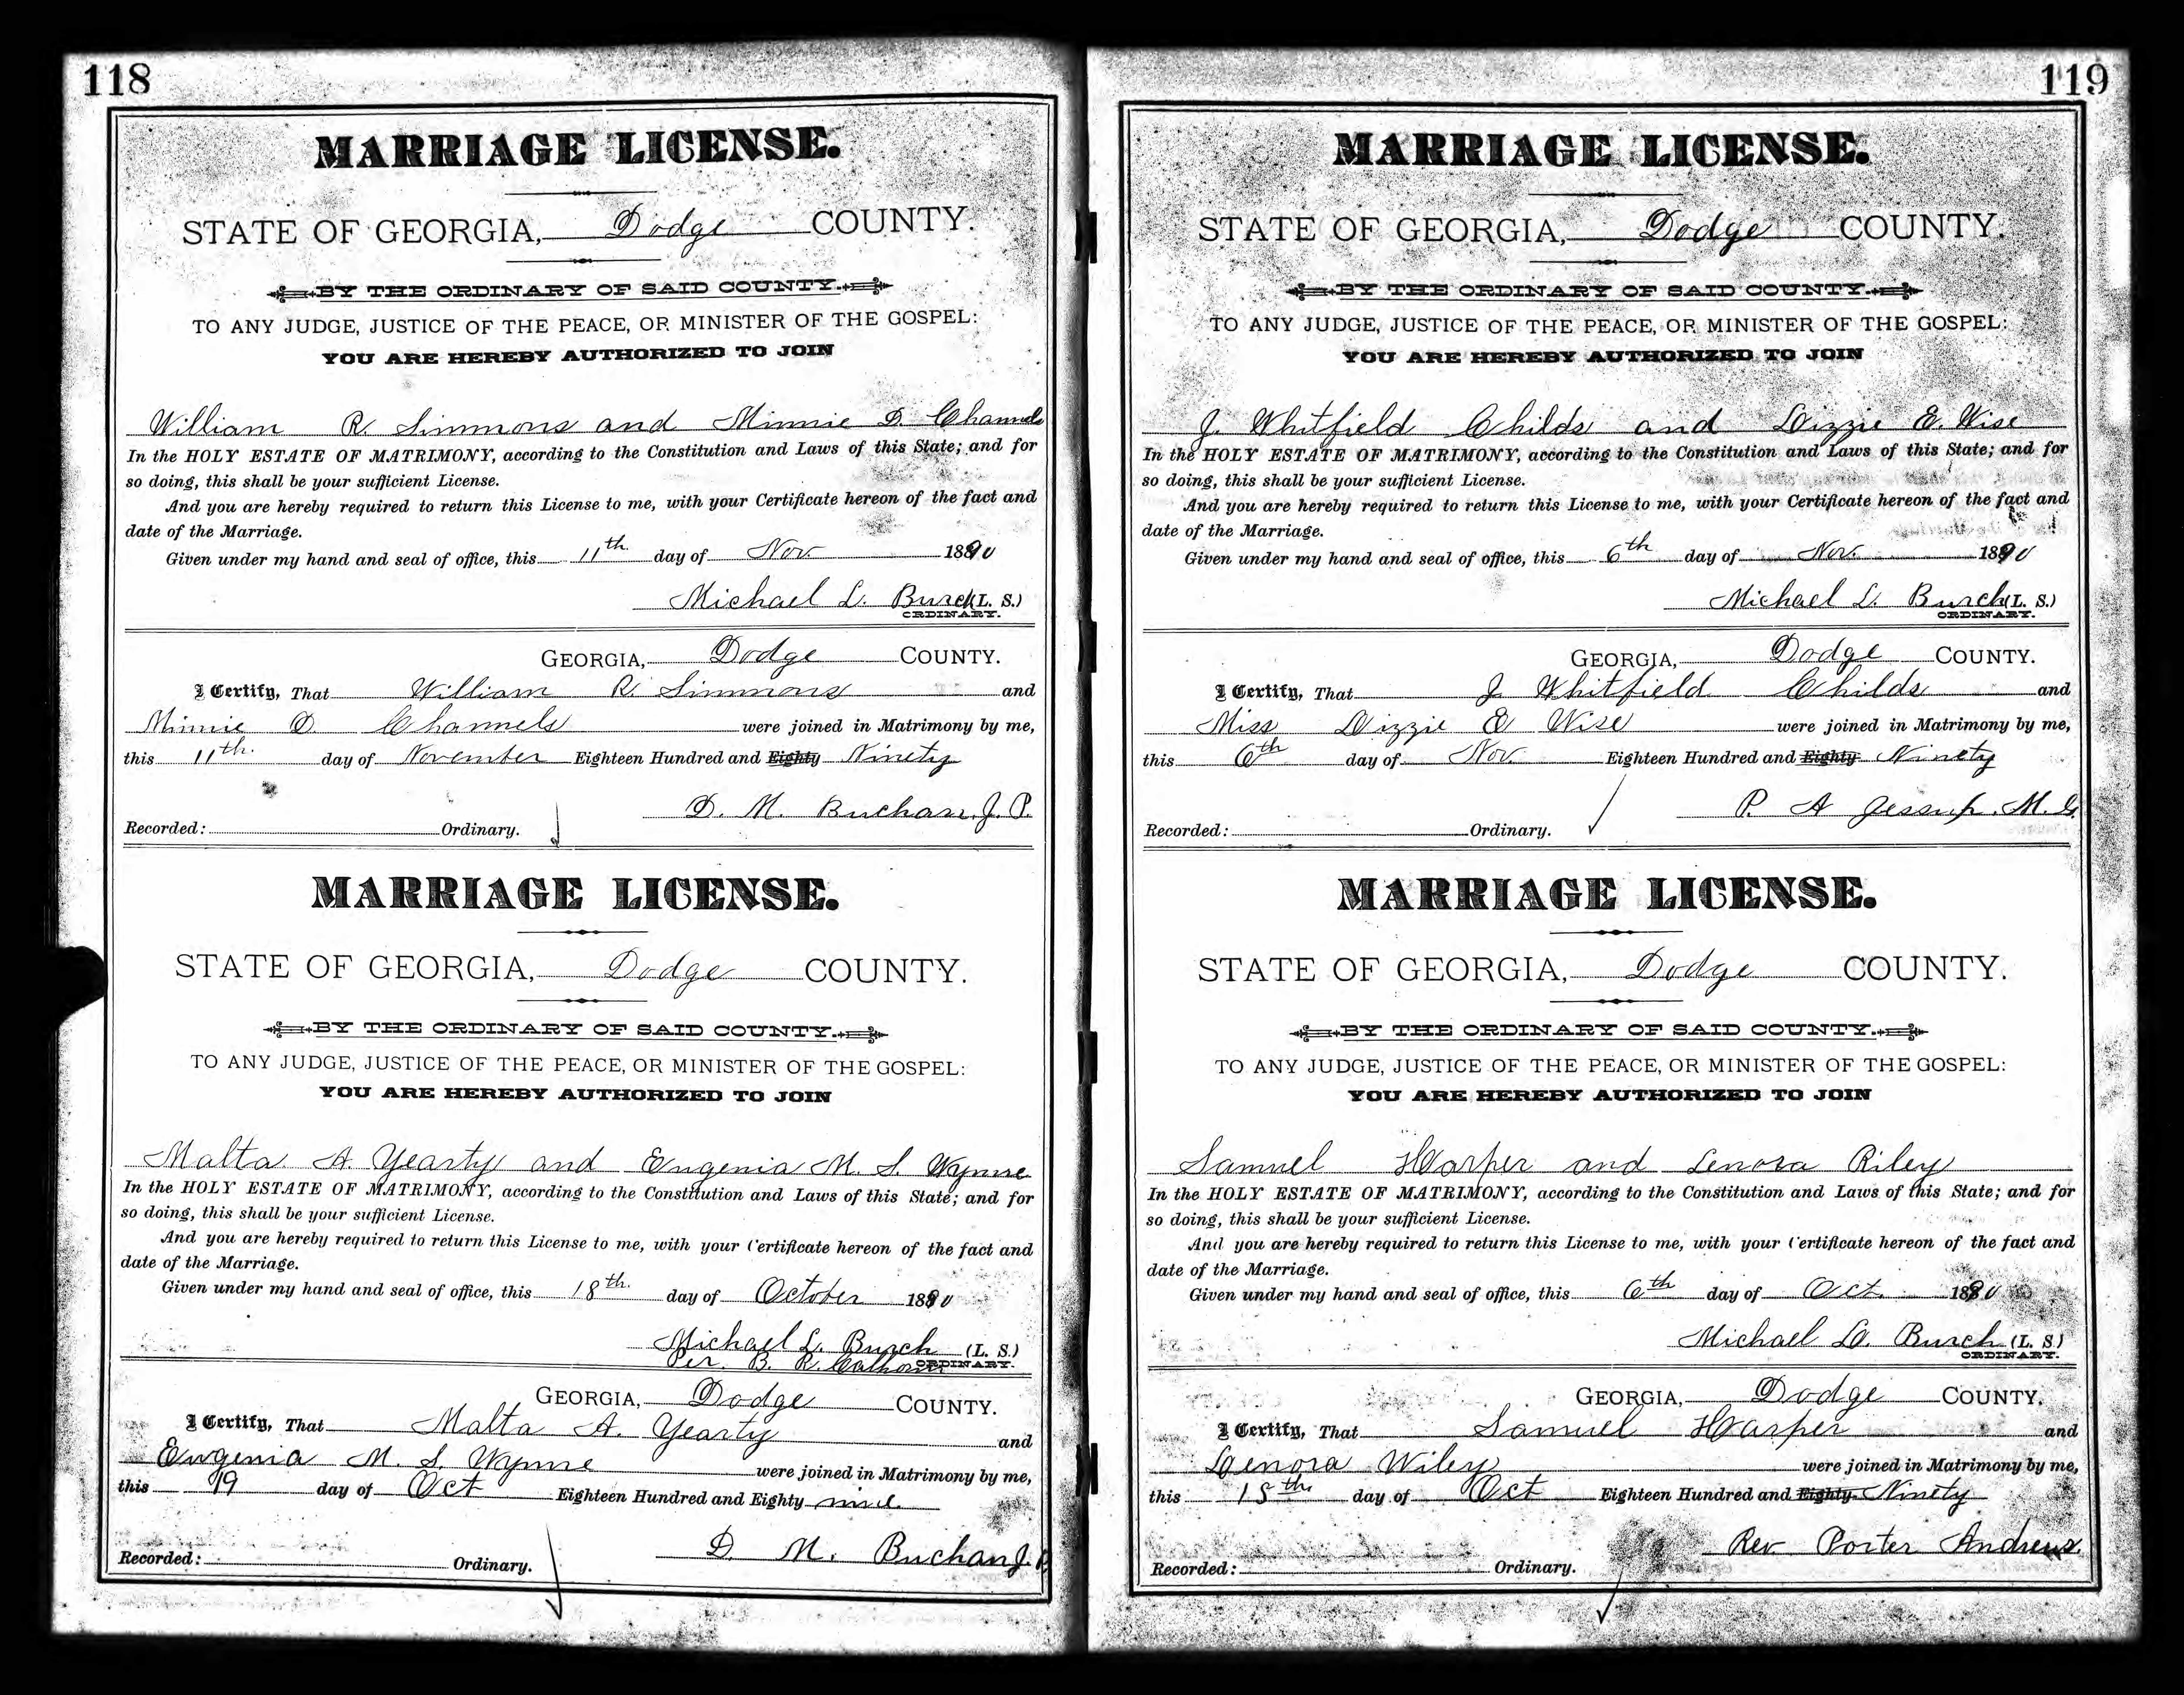 118
MARRIAGE LICENSE.
STATE OF GEORGIA, Dodge COUNTY.
BY THE ORDINARY OF SAID COUNTY.
TO ANY JUDGE, JUSTICE OF THE PEACE, OR MINISTER OF THE GOSPEL:
YOU ARE HEREBY AUTHORIZED TO JOIN
William R. Simmons and Minnie D. Channels
In the HOLY ESTATE OF MATRIMONY, according to the Constitution and Laws of this State; and for
so doing, this shall be your sufficient License.
And you are hereby required to return this License to me, with your Certificate hereon of the fact and
date of the Marriage.
Given under my hand and seal of office, this 11th day of Nov. 1890
Michael L. Burch (L. S.)
ORDINARY.
GEORGIA, Dodge COUNTY.
I Certify, That William R. Simmons and
Minnie D. Channels were joined in Matrimony by me,
this 11th. day of November Eighteen Hundred and Eighty Ninety
D. M. Buchan, J. P.
Recorded: Ordinary.
MARRIAGE LICENSE.
STATE OF GEORGIA, Dodge COUNTY.
BY THE ORDINARY OF SAID COUNTY.
TO ANY JUDGE, JUSTICE OF THE PEACE, OR MINISTER OF THE GOSPEL:
YOU ARE HEREBY AUTHORIZED TO JOIN
Malta A. Yearty and Eugenia M. S. Wynne
In the HOLY ESTATE OF MATRIMONY, according to the Constitution and Laws of this State; and for
so doing, this shall be your sufficient License.
And you are hereby required to return this License to me, with your Certificate hereon of the fact and
date of the Marriage.
Given under my hand and seal of office, this 18th. day of October 1890
Michael L. Burch (L. S.)
Per. B. R. Calhoun ORDINARY.
GEORGIA, Dodge COUNTY.
I Certify, That Malta A. Yearty and
Eugenia M. S. Wynne were joined in Matrimony by me,
this 19 day of Oct Eighteen Hundred and Eighty nine
D. M. Buchan J. P.
Recorded: Ordinary.
119
MARRIAGE LICENSE.
STATE OF GEORGIA, Dodge COUNTY.
BY THE ORDINARY OF SAID COUNTY.
TO ANY JUDGE, JUSTICE OF THE PEACE, OR MINISTER OF THE GOSPEL:
YOU ARE HEREBY AUTHORIZED TO JOIN
J. Whitfield Childs and Lizzie E. Wise
In the HOLY ESTATE OF MATRIMONY, according to the Constitution and Laws of this State; and for
so doing, this shall be your sufficient License.
And you are hereby required to return this License to me, with your Certificate hereon of the fact and
date of the Marriage.
Given under my hand and seal of office, this 6th day of Nov. 1890
Michael L. Burch (L. S.)
ORDINARY.
GEORGIA, Dodge COUNTY.
I Certify, That J. Whitfield Childs and
Miss Lizzie E Wise were joined in Matrimony by me,
this 6th day of Nov. Eighteen Hundred and Eighty Ninety
P. A Jessup. M. G.
Recorded: Ordinary.
MARRIAGE LICENSE.
STATE OF GEORGIA, Dodge COUNTY.
BY THE ORDINARY OF SAID COUNTY.
TO ANY JUDGE, JUSTICE OF THE PEACE, OR MINISTER OF THE GOSPEL:
YOU ARE HEREBY AUTHORIZED TO JOIN
Samuel Harper and Lenora Riley
In the HOLY ESTATE OF MATRIMONY, according to the Constitution and Laws of this State; and for
so doing, this shall be your sufficient License.
And you are hereby required to return this License to me, with your Certificate hereon of the fact and
date of the Marriage.
Given under my hand and seal of office, this 6th day of Oct. 1890
Michael L. Burch (L. S.)
ORDINARY.
GEORGIA, Dodge COUNTY.
I Certify, That Samuel Harper and
Lenora Wiley were joined in Matrimony by me,
this 15th. day of Oct Eighteen Hundred and Eighty Ninety
Rev Porter Andrews.
Recorded: Ordinary.